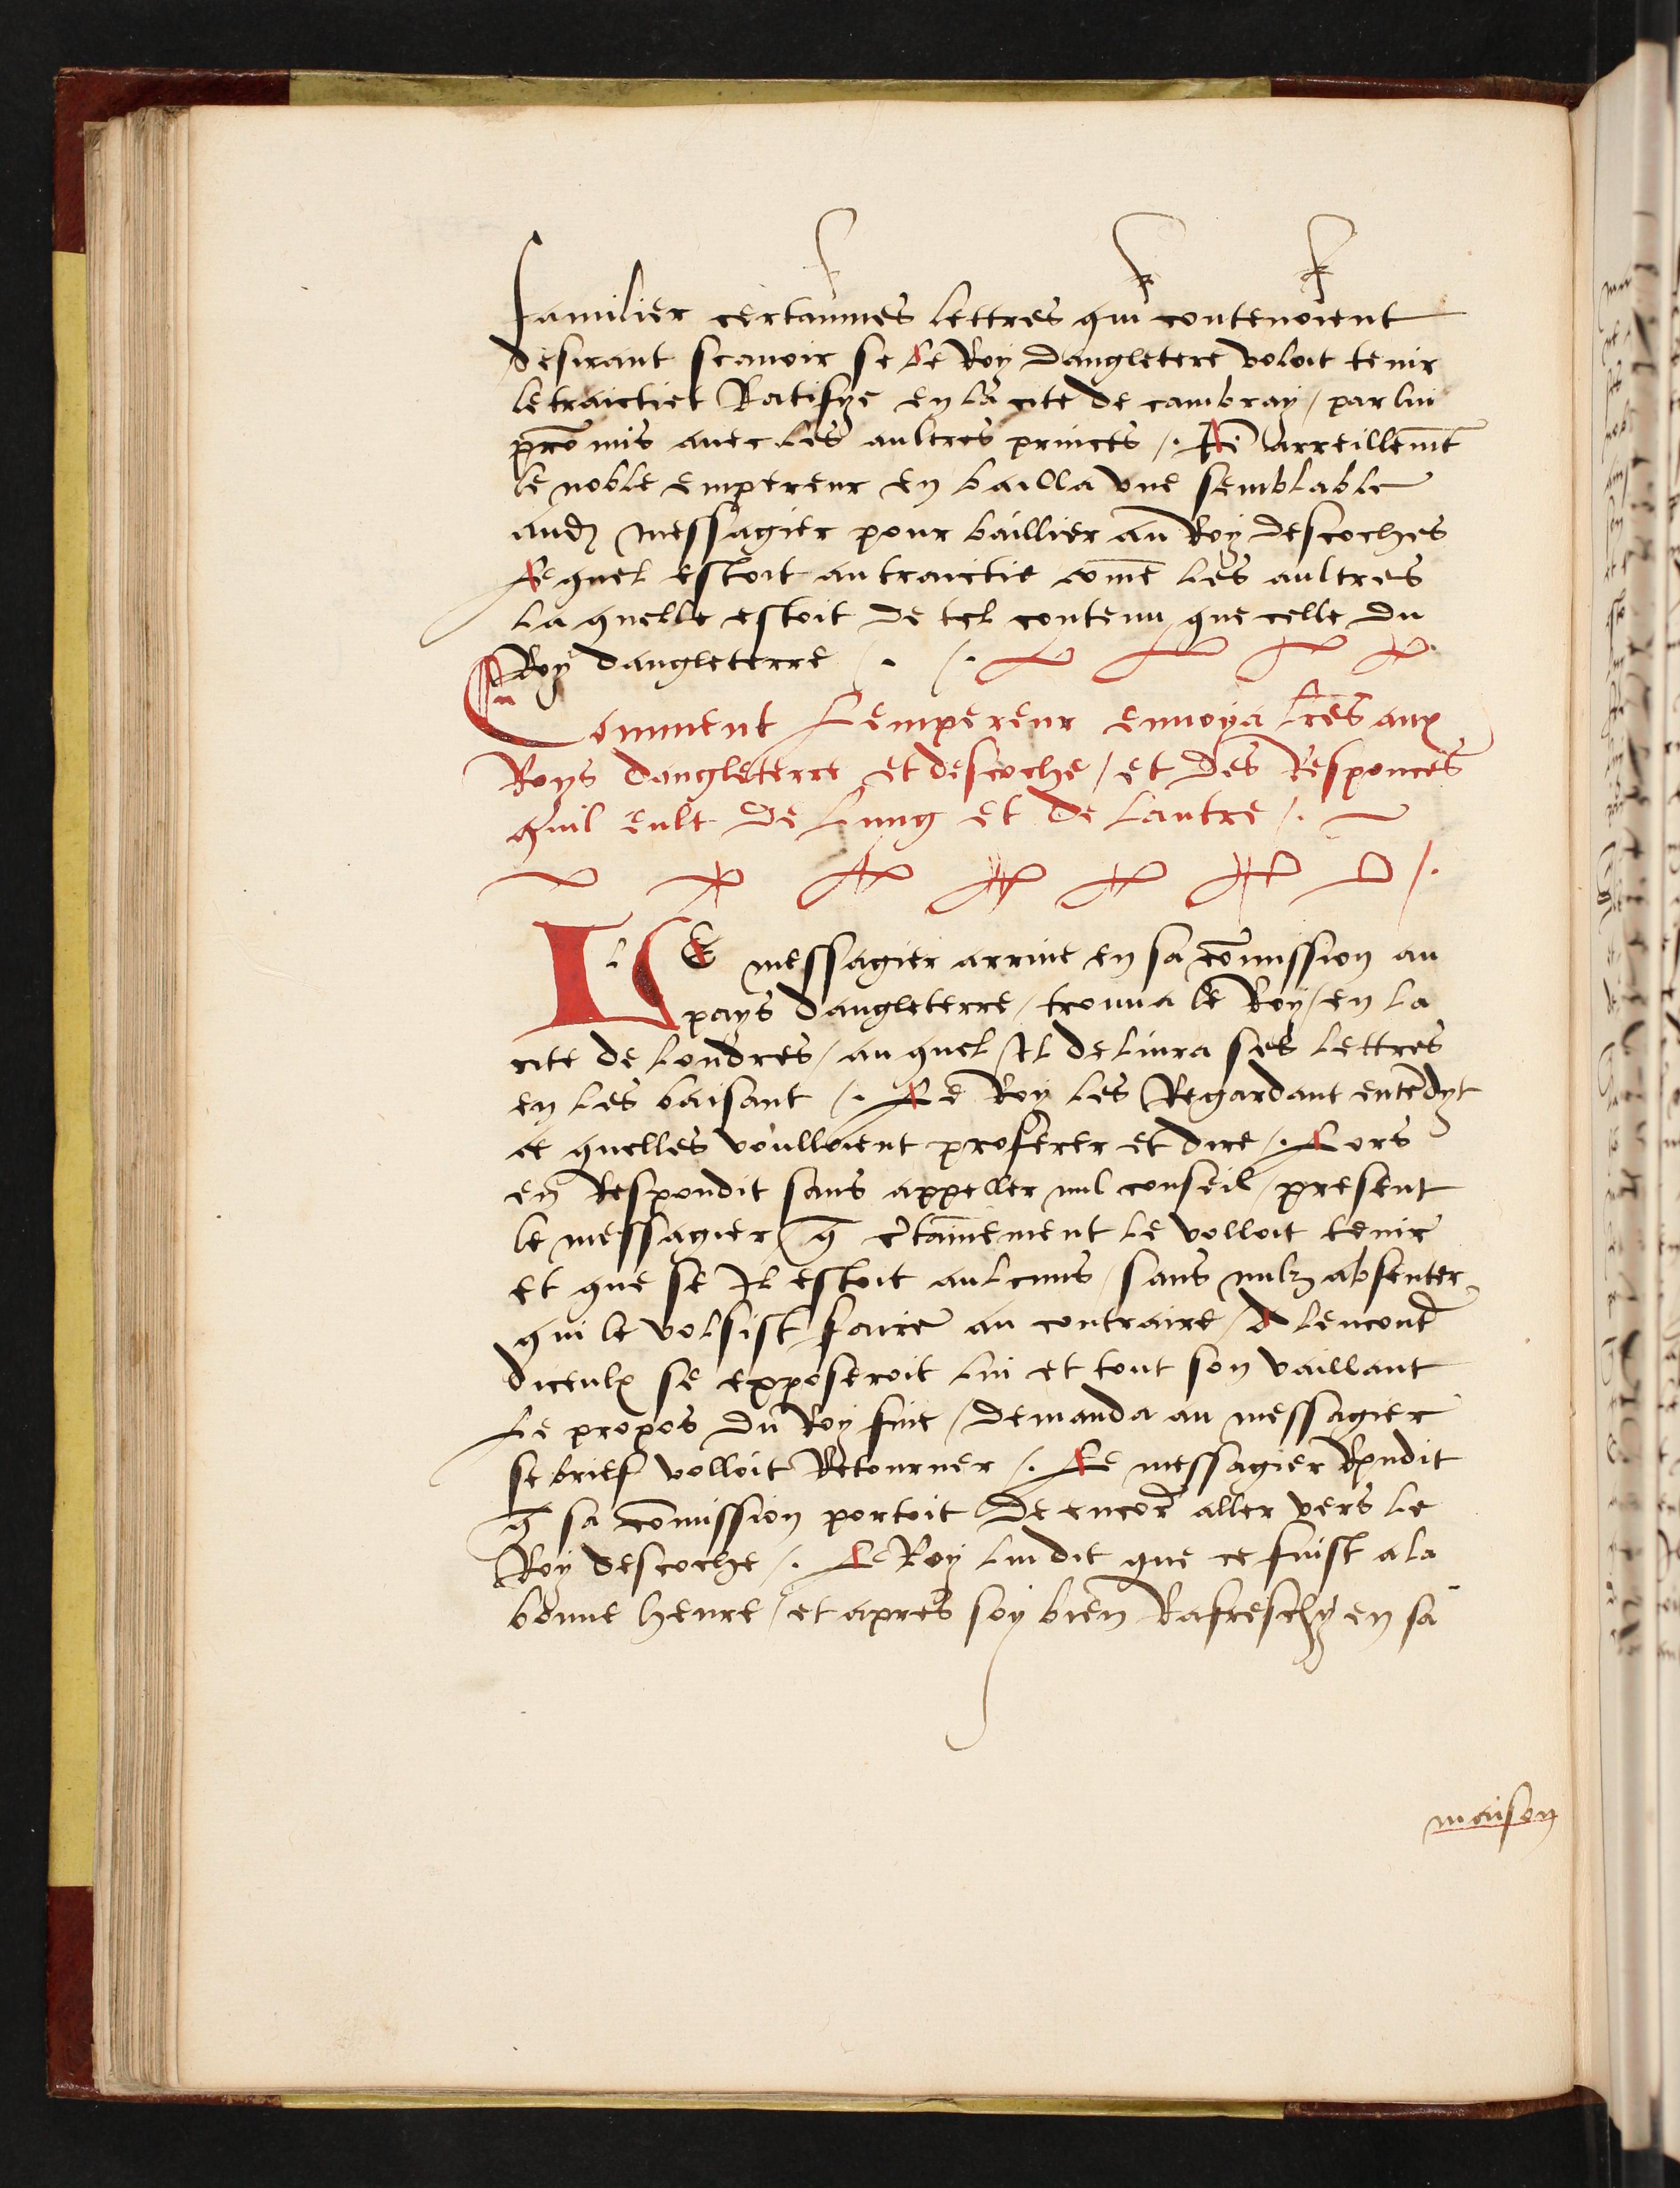 familier certaines lettres qui contenoient
desirant scauoir se le Roy dangletere voloit tenir
le traictiet Ratifye en la cite de cambray / par lui
prōmis auec les aultres princes /. parreillemēt
le noble empereur en bailla vne semblable
audz messagier pour baillier au Roy descoches
Le quel estoit au traictie com̄e les aultres
la quelle estoit de tel contenu que celle du
Roy dangleterre /. /.
Comment Lempereur enuoya lr̄es aux
Roys dangleterre et descoche / et des Responces
quil eult de lung et de lautre /.
LE messagier arriue en sa cōmission au
pays dangleterre / trouua le Roy / en la
cite de londres / au quel Il deliura ses lettres
en les baisant /. Le Roy les Regardant entēdyt
ce quelles voulloient proferer et dire /. Lors
en Respondit sans appeller nul conseil / present
le messagier / q̄ c̄tainement le volloit tenir
et que se Il estoit aulcuns / sans nulz absenter
qui le volsist faire au contraire / A lencontr̄
diceulx se expposeroit lui et tout son vaillant
Le propos du Roy fine / demanda au messagier
se brief volloit Retourner /. Le messagier Rpndit
q̄ sa cōmission portoit de encor̄ aller vers le
Roy descoche /. Le Roy lui dit que ce fuist a la
bonne heure / et apres soy bien Rafreschy en sa
maison